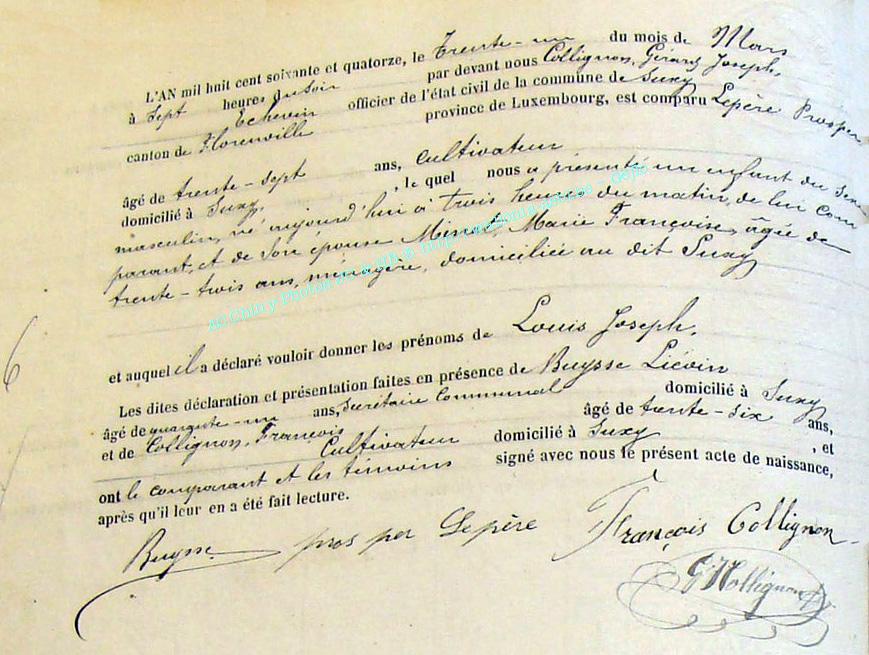 L'AN mil huit cent soixante et quatorze, le Trente-un du mois de Mars
à Sept heures du Soir par devant nous Collignon, Gérard Joseph,
Echevin officier de l'état civil de la commune de Suxy
canton de Florenville province de Luxembourg, est comparu Lepère Prosper
âgé de trente-sept ans, cultivateur
domicilié à Suxy, le quel nous a présenté un enfant du sexe
masculin, né aujourd'hui à trois heures du matin, de lui com
parant, et de son épouse Marie Françoise, âgée de
trente-trois ans, ménagère, domiciliée au dit Suxy
et auquel il a déclaré vouloir donner les prénoms de Louis Joseph.
Les dites déclaration et présentation faites en présence de Buysse Liévin
âgé de quarante-un ans, Secrétaire Communal domicilié à Suxy
et de Collignon, François âgé de trente-six ans,
Cultivateur domicilié à Suxy, et
ont le comparant et les témoins signé avec nous le présent acte de naissance,
après qu'il leur en a été fait lecture.
Buysse prosper Lepère François Collignon
Collignon
6